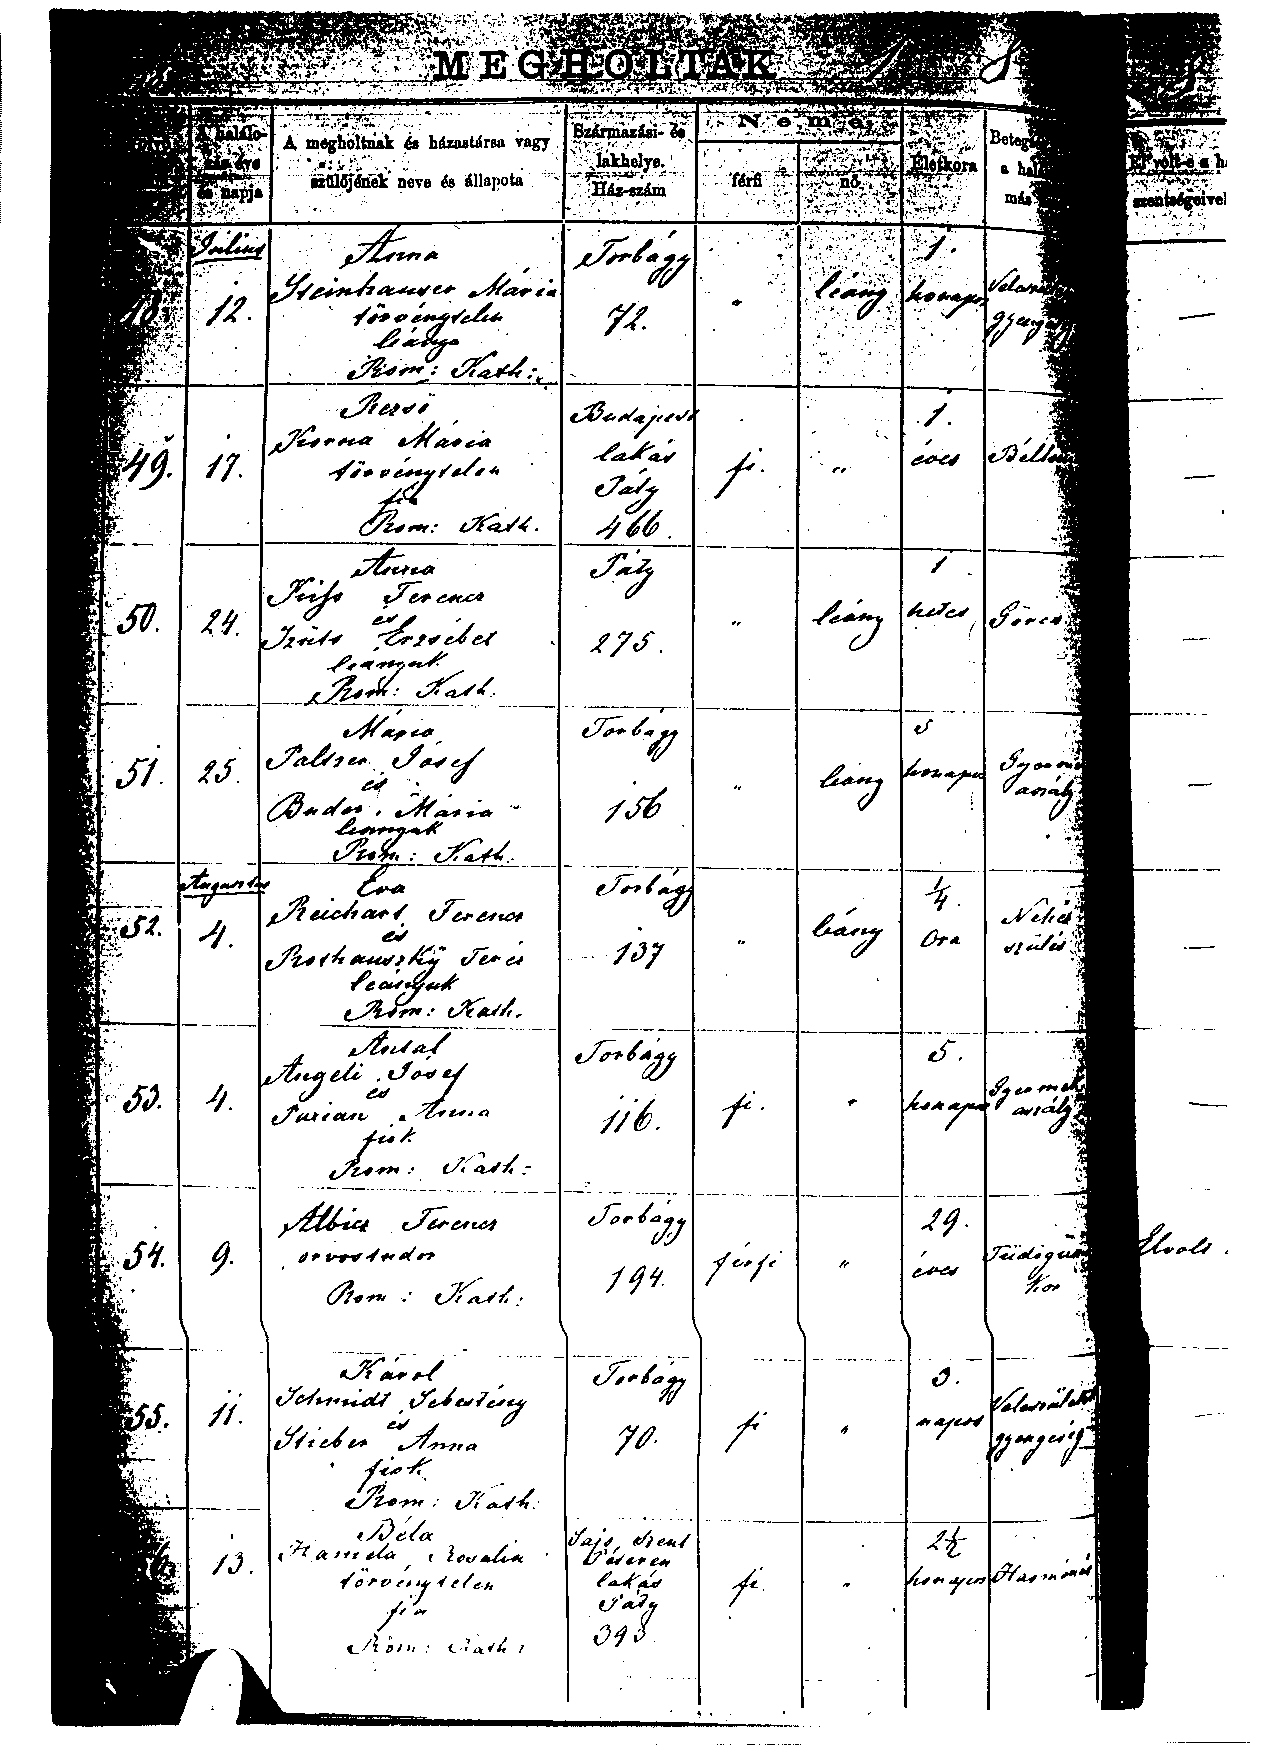 MEGHOLTAK 1 8
A halálo-
zás éve
és napja
A megholtnak és házastársa vagy
szülőjének neve és állapota
Származási- és
lakhelye.
Ház-szám
Neme
férfi
nő
Életkora
Beteg
a hal
más
El volt-e a h
szentségeivel
Július
12.
Anna
Steinhauser Mária
törvénytelen
leánya
Rom: Kath:
Torbágy
72.
"
leány
1.
honapos
—
49.
17.
Rezsö
Korna Mária
törvénytelen
fia
Rom: Kath.
Budapest
lakás
Páty
466.
fi.
"
1.
éves
—
50.
24.
Anna
Kiss Ferencz
és
Szüts Erzsébet
leányuk
Rom: Kath.
Páty
275.
"
leány
1
hetes
Görcs
51.
25.
Mária
Paltzer Jósef
és
Buder Mária
leanyuk
Rom: Kath.
Torbágy
156
"
leany
5
honapos
—
Augustus
52.
4.
Éva
Reichart Ferencz
és
Teréz
leányuk
Rom: Kath.
Torbágy
137
"
leány
1/4.
óra
Nehéz
szülés
53.
4.
Antal
Angeli Jósef
és
Anna
fiok
Rom: Kath:
Torbágy
116.
fi.
"
5.
honapos
—
54.
9.
Ferencz
orvostudor
Rom: Kath:
Torbágy
194.
férfi
"
29.
éves
Kor
Elvolt.
55.
11.
Károl
Schmidt Sebestény
és
Stieber Anna
fiok
Rom: Kath:
Torbágy
70.
fi
"
3.
napos
gyengeség
—
13.
Béla
Rosalia
törvénytelen
fia
Rom: Kath:
lakás
Páty
393
fi.
"
2½
honapos